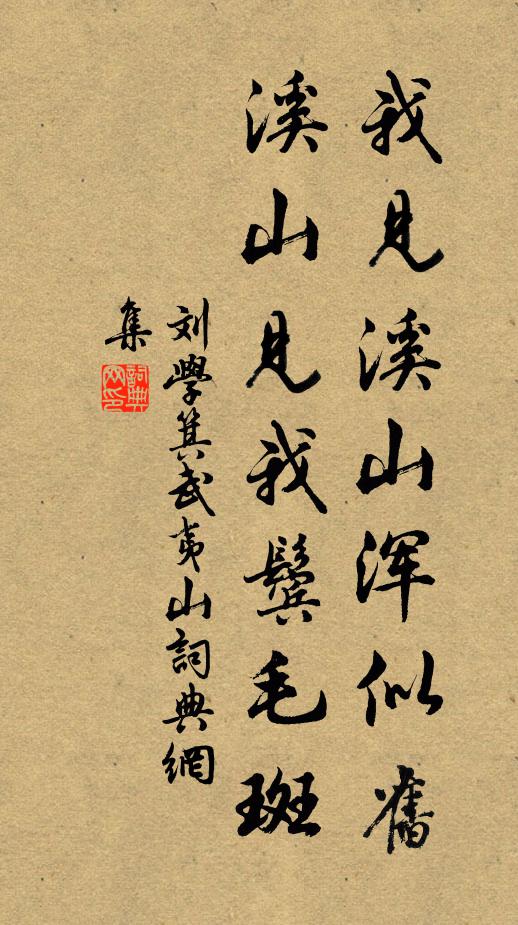 我見溪山浑似舊
溪山見我鬓毛斑
刘學箕武夷山詞典網
集
詞典網印